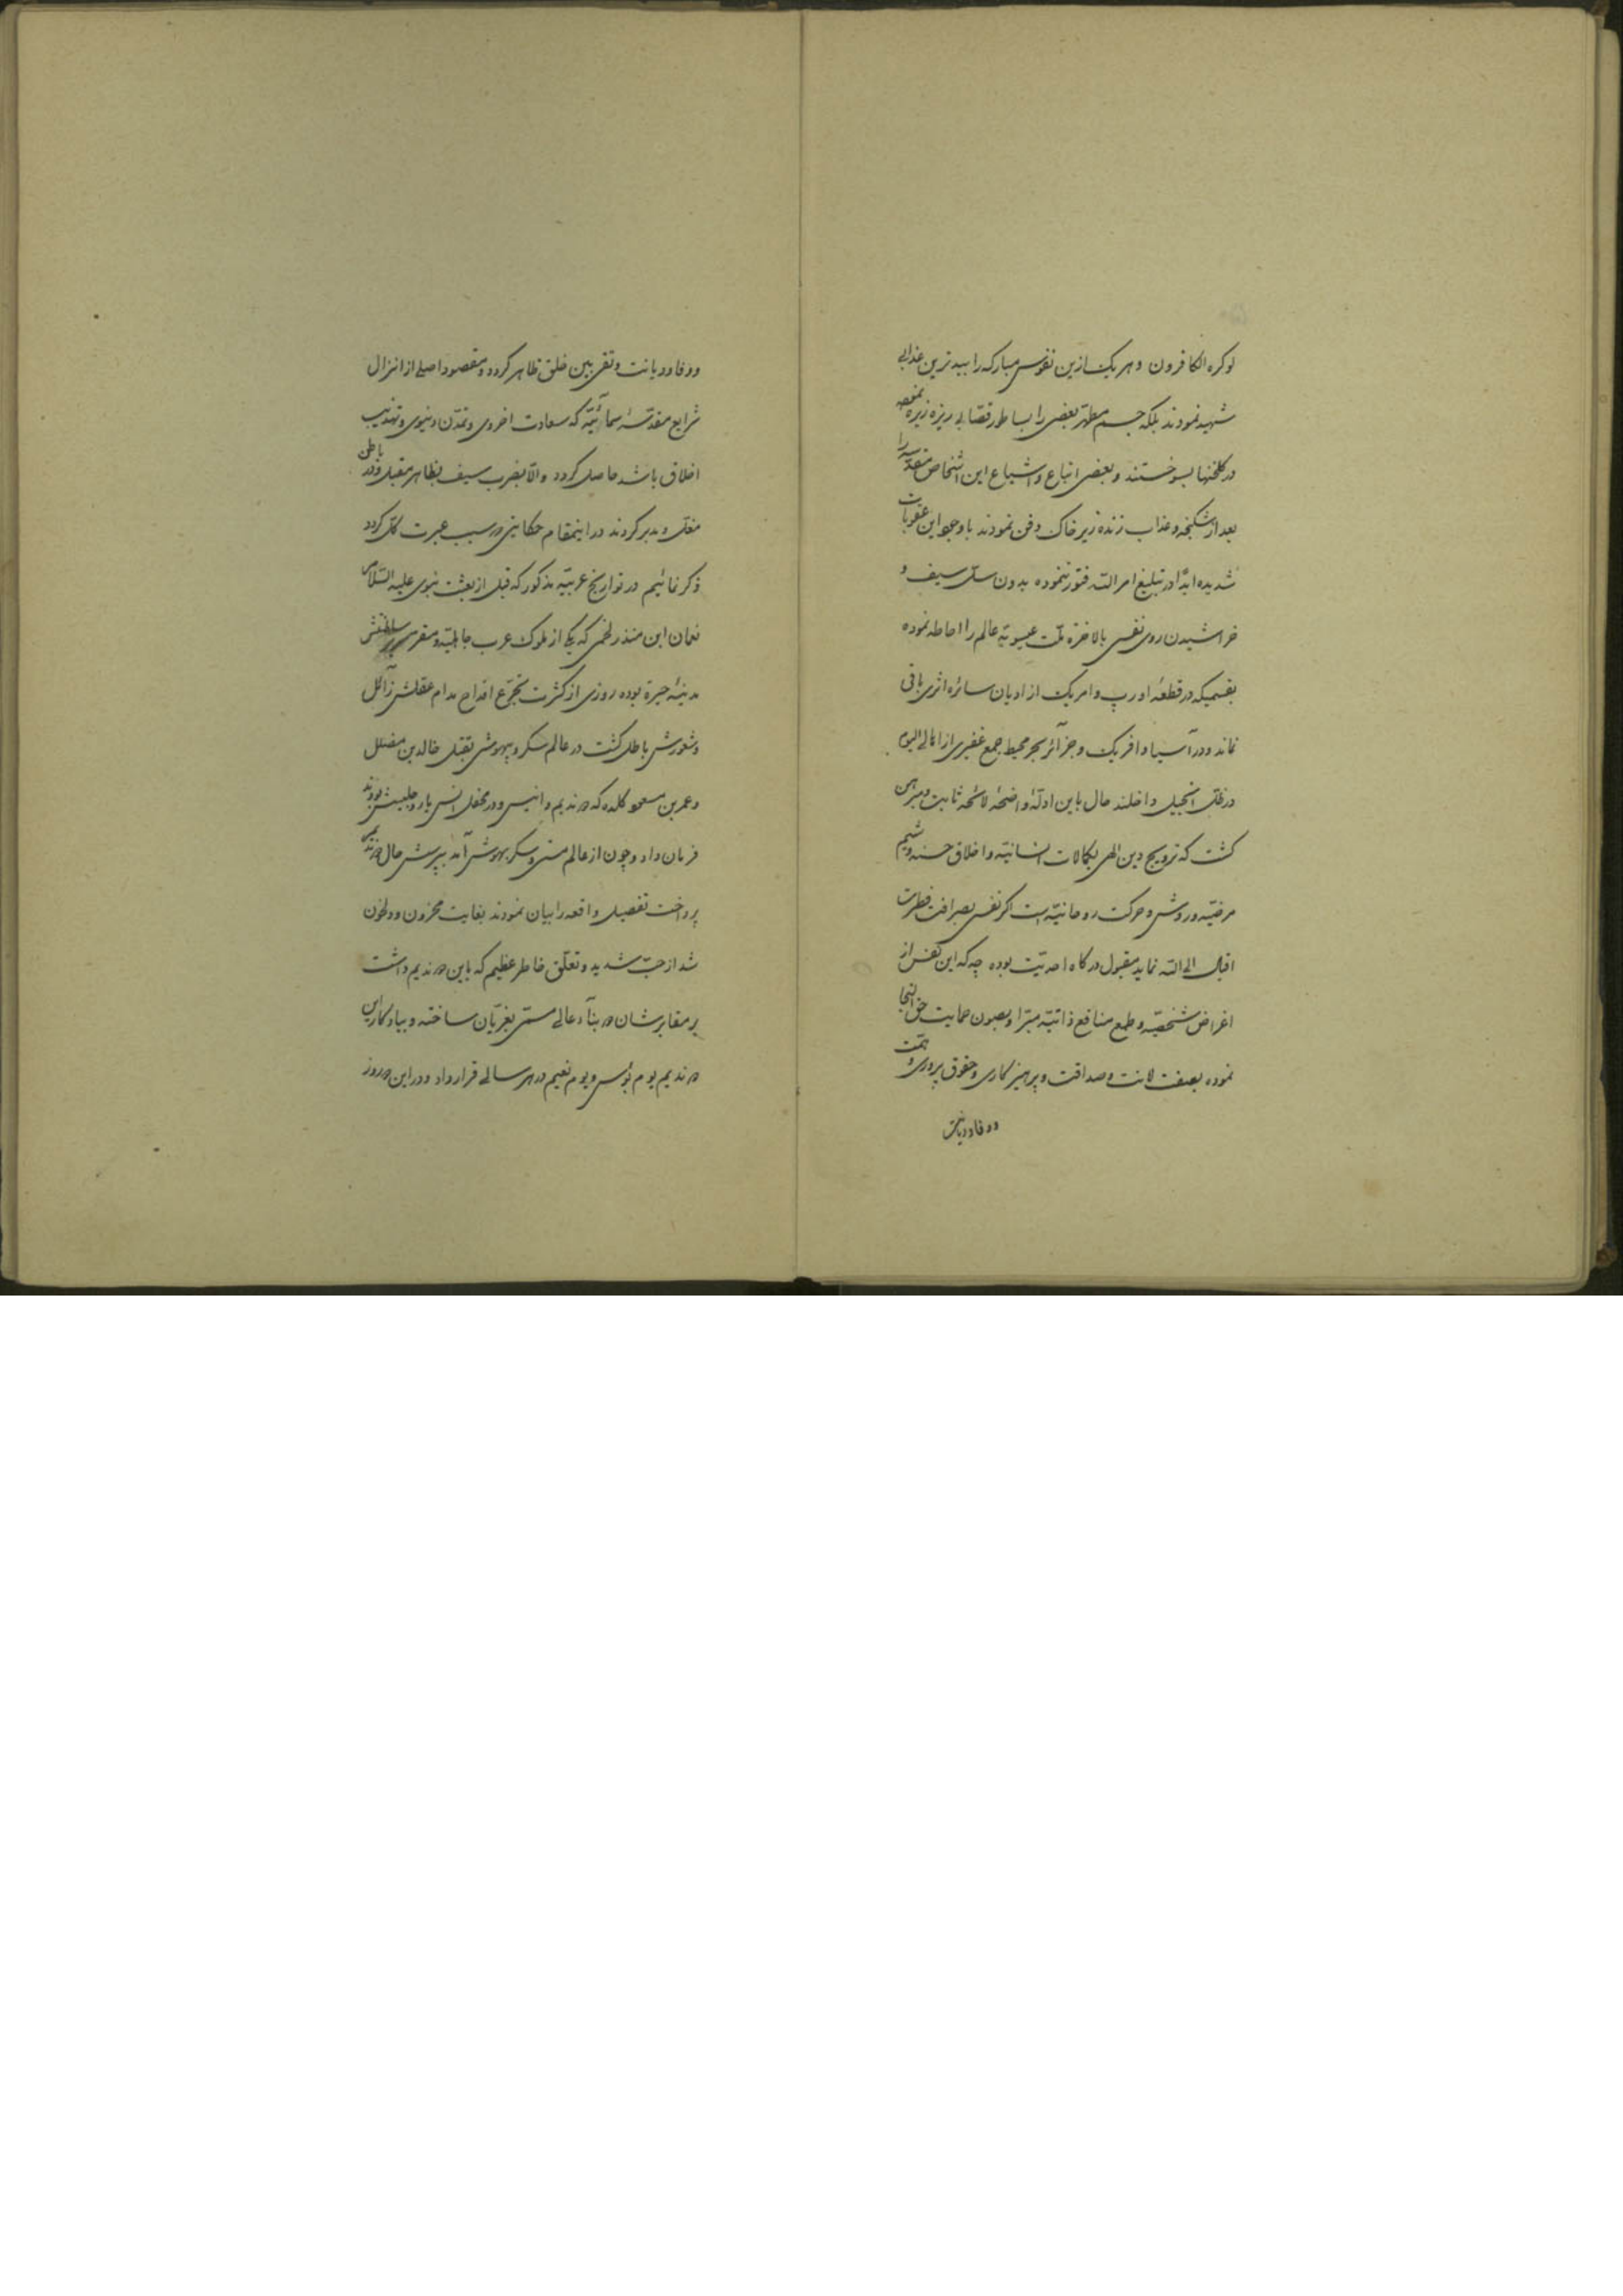 لو کره الکافرون و هر یک از این نفوس مبارکه را ببدترین عذابی
شهید نمودند بلکه جسم مطهر بعضی را بساطور قصابی ریزه ریزه نموده
در گلخنها بسوختند و بعضی اتباع و اشیاع این اشخاص مقدسه را
بعد از شکنجه و عذاب زنده زیر خاک دفن نمودند باوجود این عقوبات
شدیده ابداً در تبلیغ امر الله فتور ننموده بدون سلّ سیف و
خراشیدن روی نفسی بالاخره ملّت عیسویّه عالم را احاطه نموده
بقسمیکه در قطعهٔ اورپ و امریک از ادیان سائره اثری باقی
نماند و در آسیا و افریک و جزائر بحر محیط جمع غفیری از اهالی الیوم
در ظلّ انجیل داخلند حال باین ادلّهٔ واضحهٔ لائحه ثابت و مبرهن
گشت که ترویج دین الهی بکمالات انسانیّه و اخلاق حسنه و شیم
مرضیّه و روش و حرکت روحانیّه است اگر نفسی بصرافت فطرت
اقبال الی الله نماید مقبول درگاه احدیّت بوده چه که این نفس از
اغراض شخصیّه و طمع منافع ذاتیّه مبرّا و بصون حمایت حقّ التجا
نموده بصفت امانت و صداقت و پرهیزکاری و حقوق پروری و همّت
و وفا و دیانت
و وفا و دیانت و تقی بین خلق ظاهر گردد و مقصود اصلی از انزال
شرایع مقدّسهٔ سمائیّه که سعادت اخروی و تمدّن دنیوی و تهذیب
اخلاق باشد حاصل گردد و الّا بضرب سیف بظاهر مقبل و در باطن
مغلّ و مدبر گردند در اینمقام حکایتی که سبب عبرت کلّ گردد
ذکر نمائیم در تواریخ عربیّه مذکور که قبل از بعثت نبوی علیه السّلام
نعمان ابن منذر لخمی که یکی از ملوک عرب جاهلیّه و مقرّ سریر سلطنتش
مدینهٔ حیرة بوده روزی از کثرت تجرّع اقداح مدام عقلش زائل
و شعورش باطل گشت در عالم سکر و بیهوشی بقتل خالد بن مضلل
و عمر بن مسعود کلده که دو ندیم و انیس و در محفل انس یار و جلیسش بودند
فرمان داد و چون از عالم مستی و سکر بهوش آمد بپرسش حال دو ندیم
پرداخت تفصیل واقعه را بیان نمودند بغایت محزون و دلخون
شد از حبّ شدید و تعلّق خاطر عظیم که باین دو ندیم داشت
بر مقابرشان دو بنآء عالی مسمّی بغریّان ساخته و بیادگار این
دو ندیم یوم بؤس و یوم نعیم در هر سالی قرار داد و در این دو روز